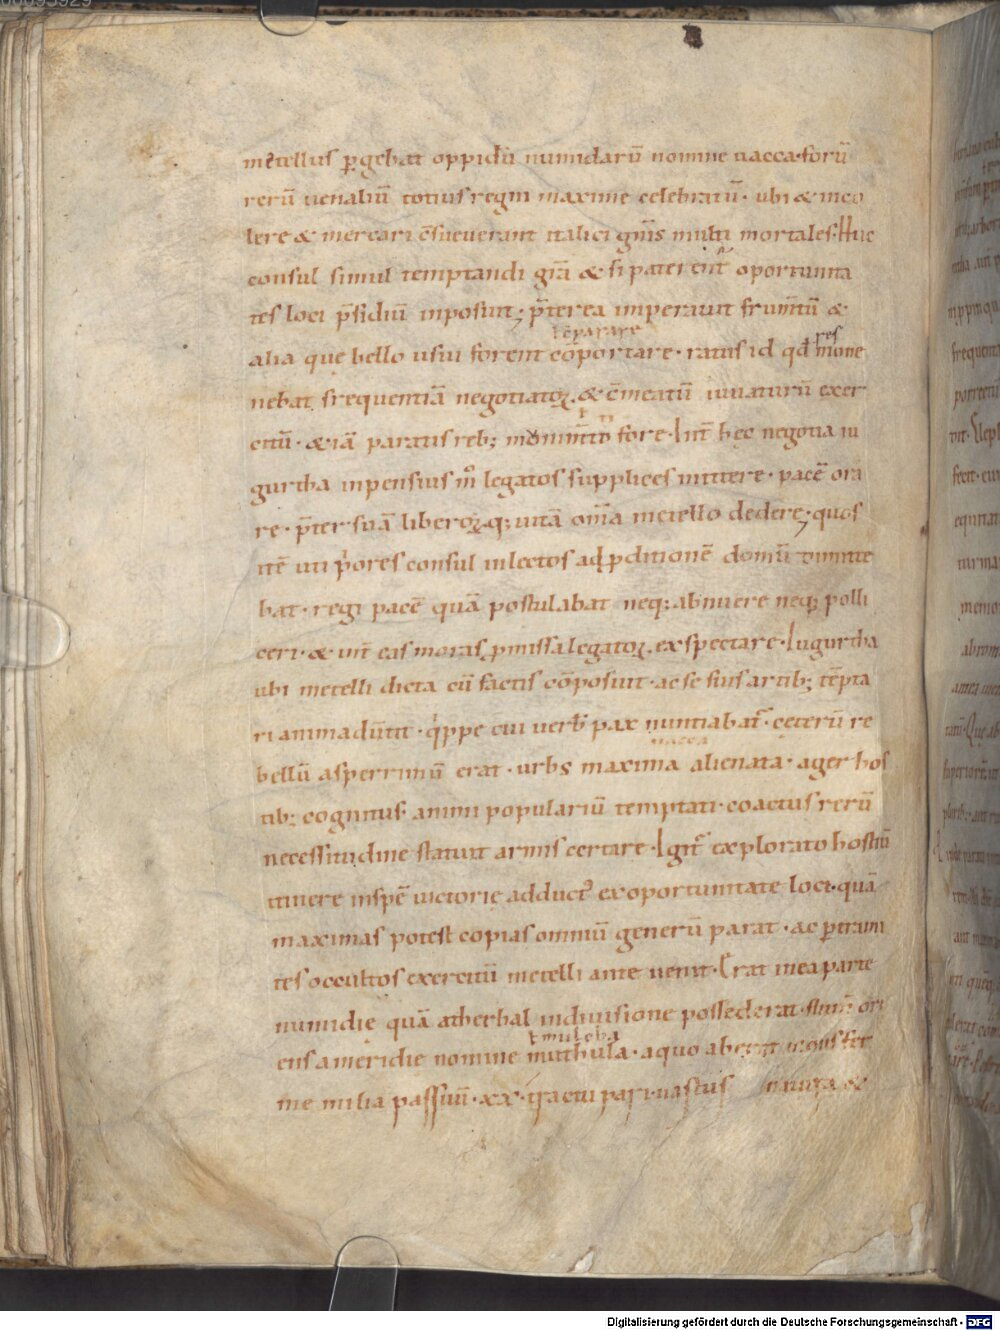 metellus ꝑgebat oppidū numidarū nomine uacca·forū
rerū uenaliū totius regni maxime celebratū· ubi & inco
lere & mercari c̄sueuerant italici gn̄is multi mortales·Huc
consul simul temptandi grā & si patei ent̄ oportunita
tes loci p̄sidiū inposuit; p̄terea imperauit frum̄tū &
t c̄parare
alia que bello usui forent cōportare· ratus id qd̄ mone
res
nebat frequentiā negotiatoꝝ· & c̄meatū iuuaturū exer
citū· & iā paratis reb; fore· Int̄ hec negotia iu
gurtha inpensius m̊ legatos supplices mittere· pacē ora
re· p̄ter suā liberoꝝ·q; uitā om̄ia metello dedere; quos
itē uti pͥores consul inlectos adꝓditionē domū dimitte
bat· regi pacē quā postulabat neq; abnuere neq; polli
ceri· & int̄ eas moras ꝓmissa legatoꝝ· exspectare· Iugurtha
ubi metelli dicta cū factis cōposuit· ac se suis artib; tēpta
ri animaduertit· qͥppe cui uerb̄ pax nuntiabat᷑· ceterū re
uacca
bellū asperrimū erat· urbs maxima alienata· ager hos
tib; cognitus· animi populariū temptati· coactus rerū
necessitudine statuit armis certare· Igit᷑ explorato hostiū
itinere inspē uictorie adduct᷒ ex oportunitate loci· quā
maximas potest copias omniū generū parat· ac ꝑ trami
tes occultos exercitū metelli ante uenit· Erat in ea parte
numidie quā atherbal indiuisione possederat· flum̄ ori
ens ameridie nomine muthula· aquo aberat mons fer
t muluba
me milia passuū· xx· tractu pari· uastus natura &